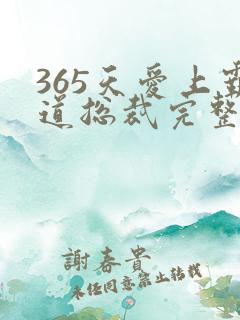 365天爱上霸
道总裁完整
謝春貴
未经同意禁止转载